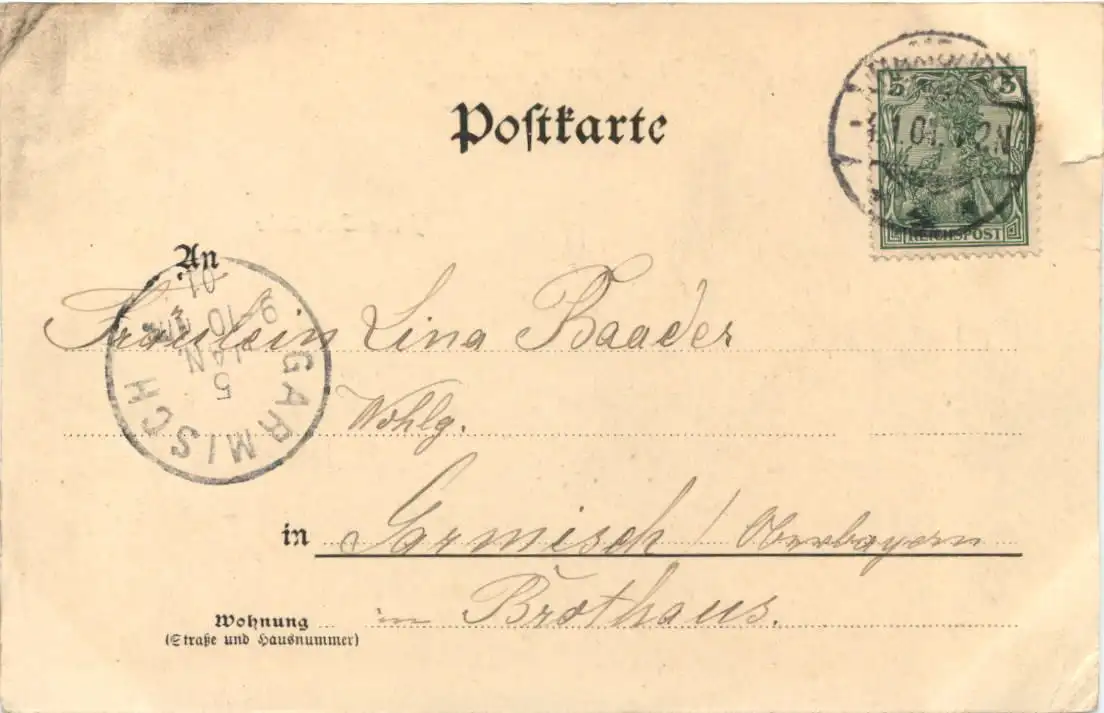 Postkarte
5 5
1.01. 2N
REICHSPOST
An
Fräulein Lina Baader
GARMISCH
5 JAN. 9-10 01
Wohlg.
in Garmisch / Oberbayern
Wohnung in Brothaus.
(Straße und Hausnummer)